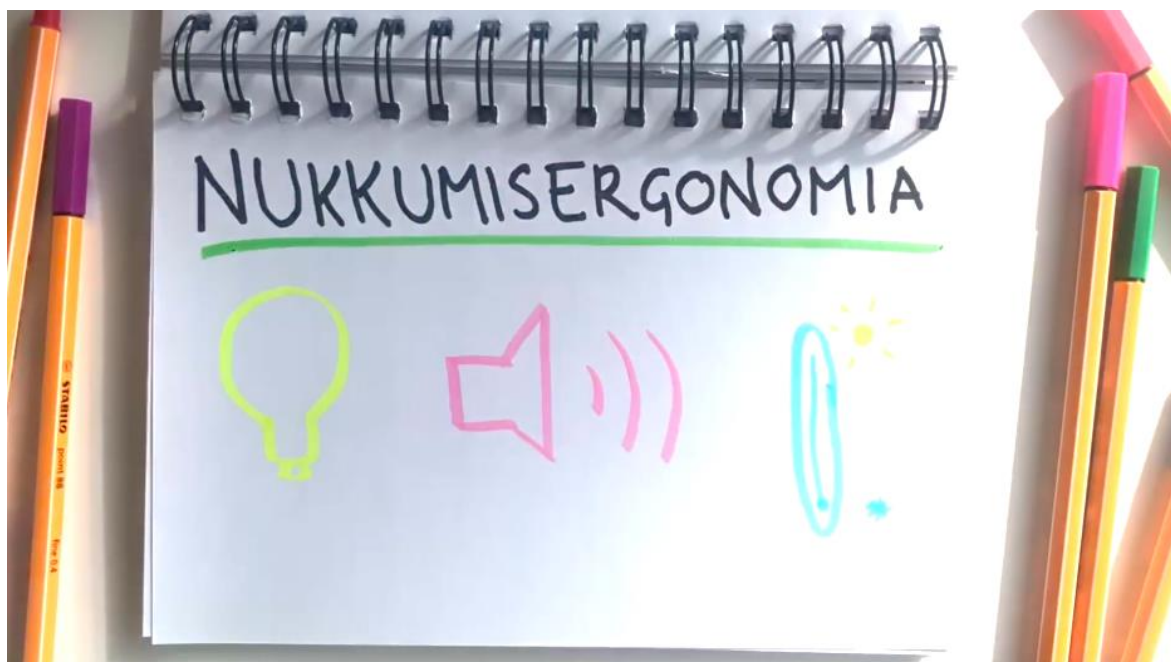 NUKKUMISERGONOMIA
STABILO point 88 fine 0.4